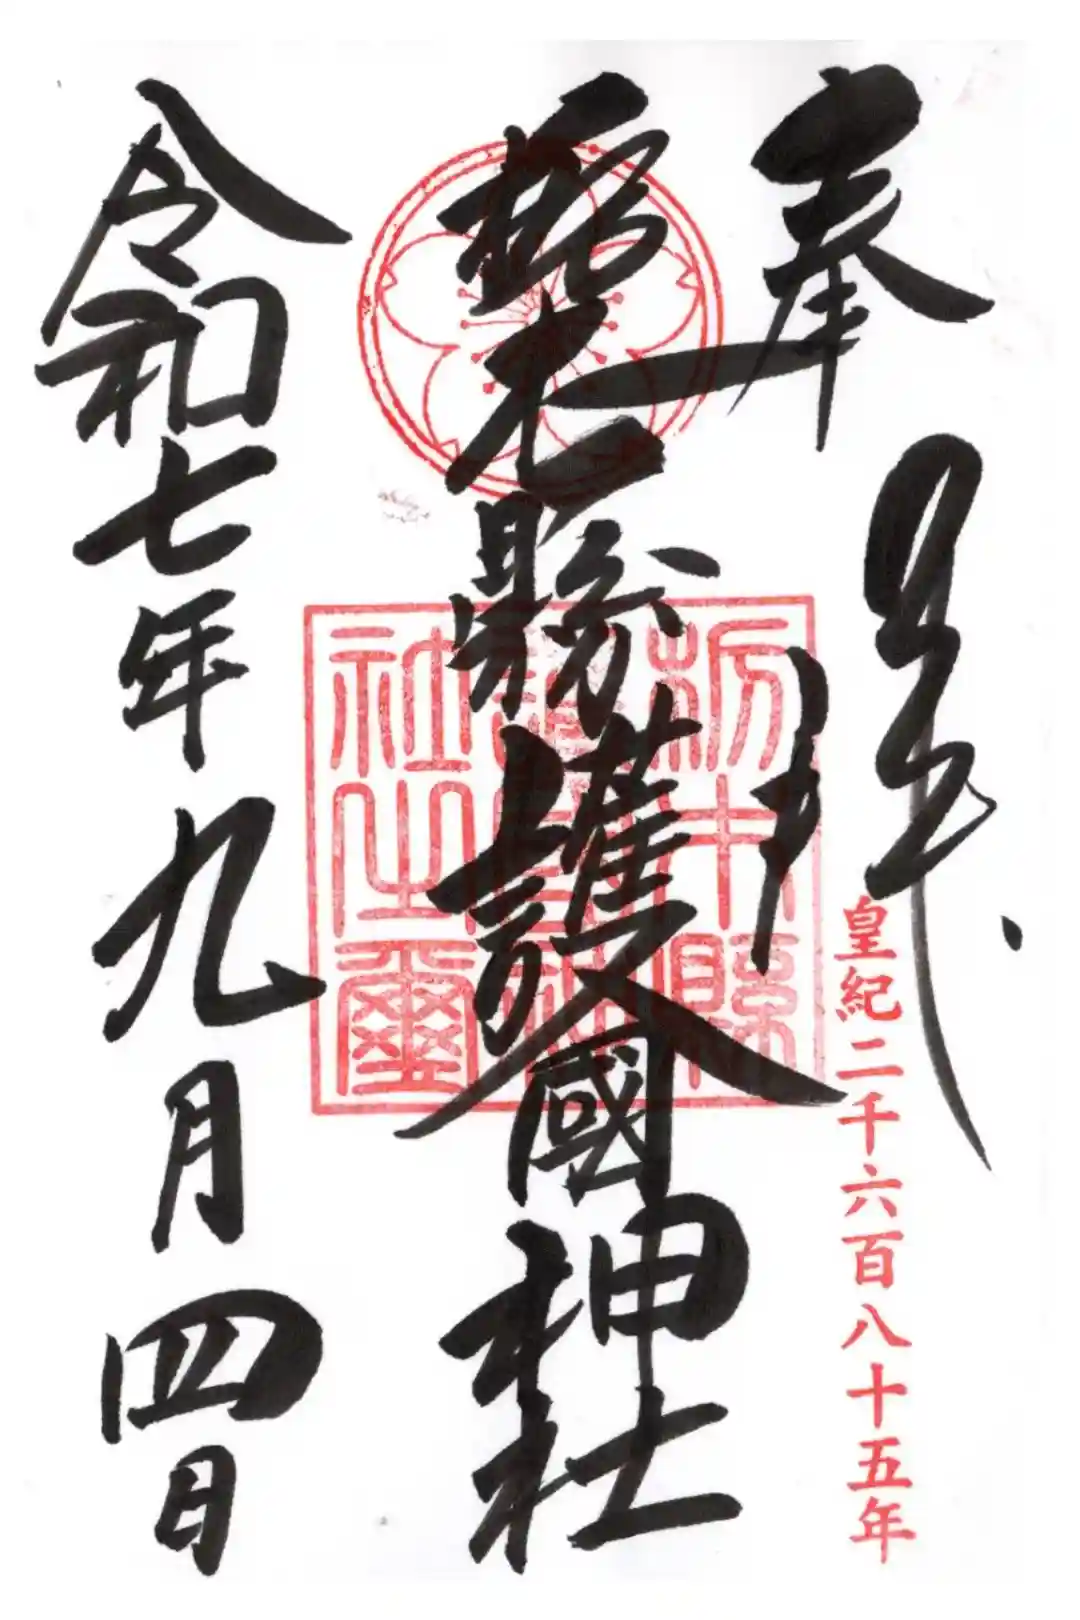 奉拝
皇紀二千六百八十五年
栃木縣護國神社
栃木縣
護國神
社之璽
令和七年九月四日